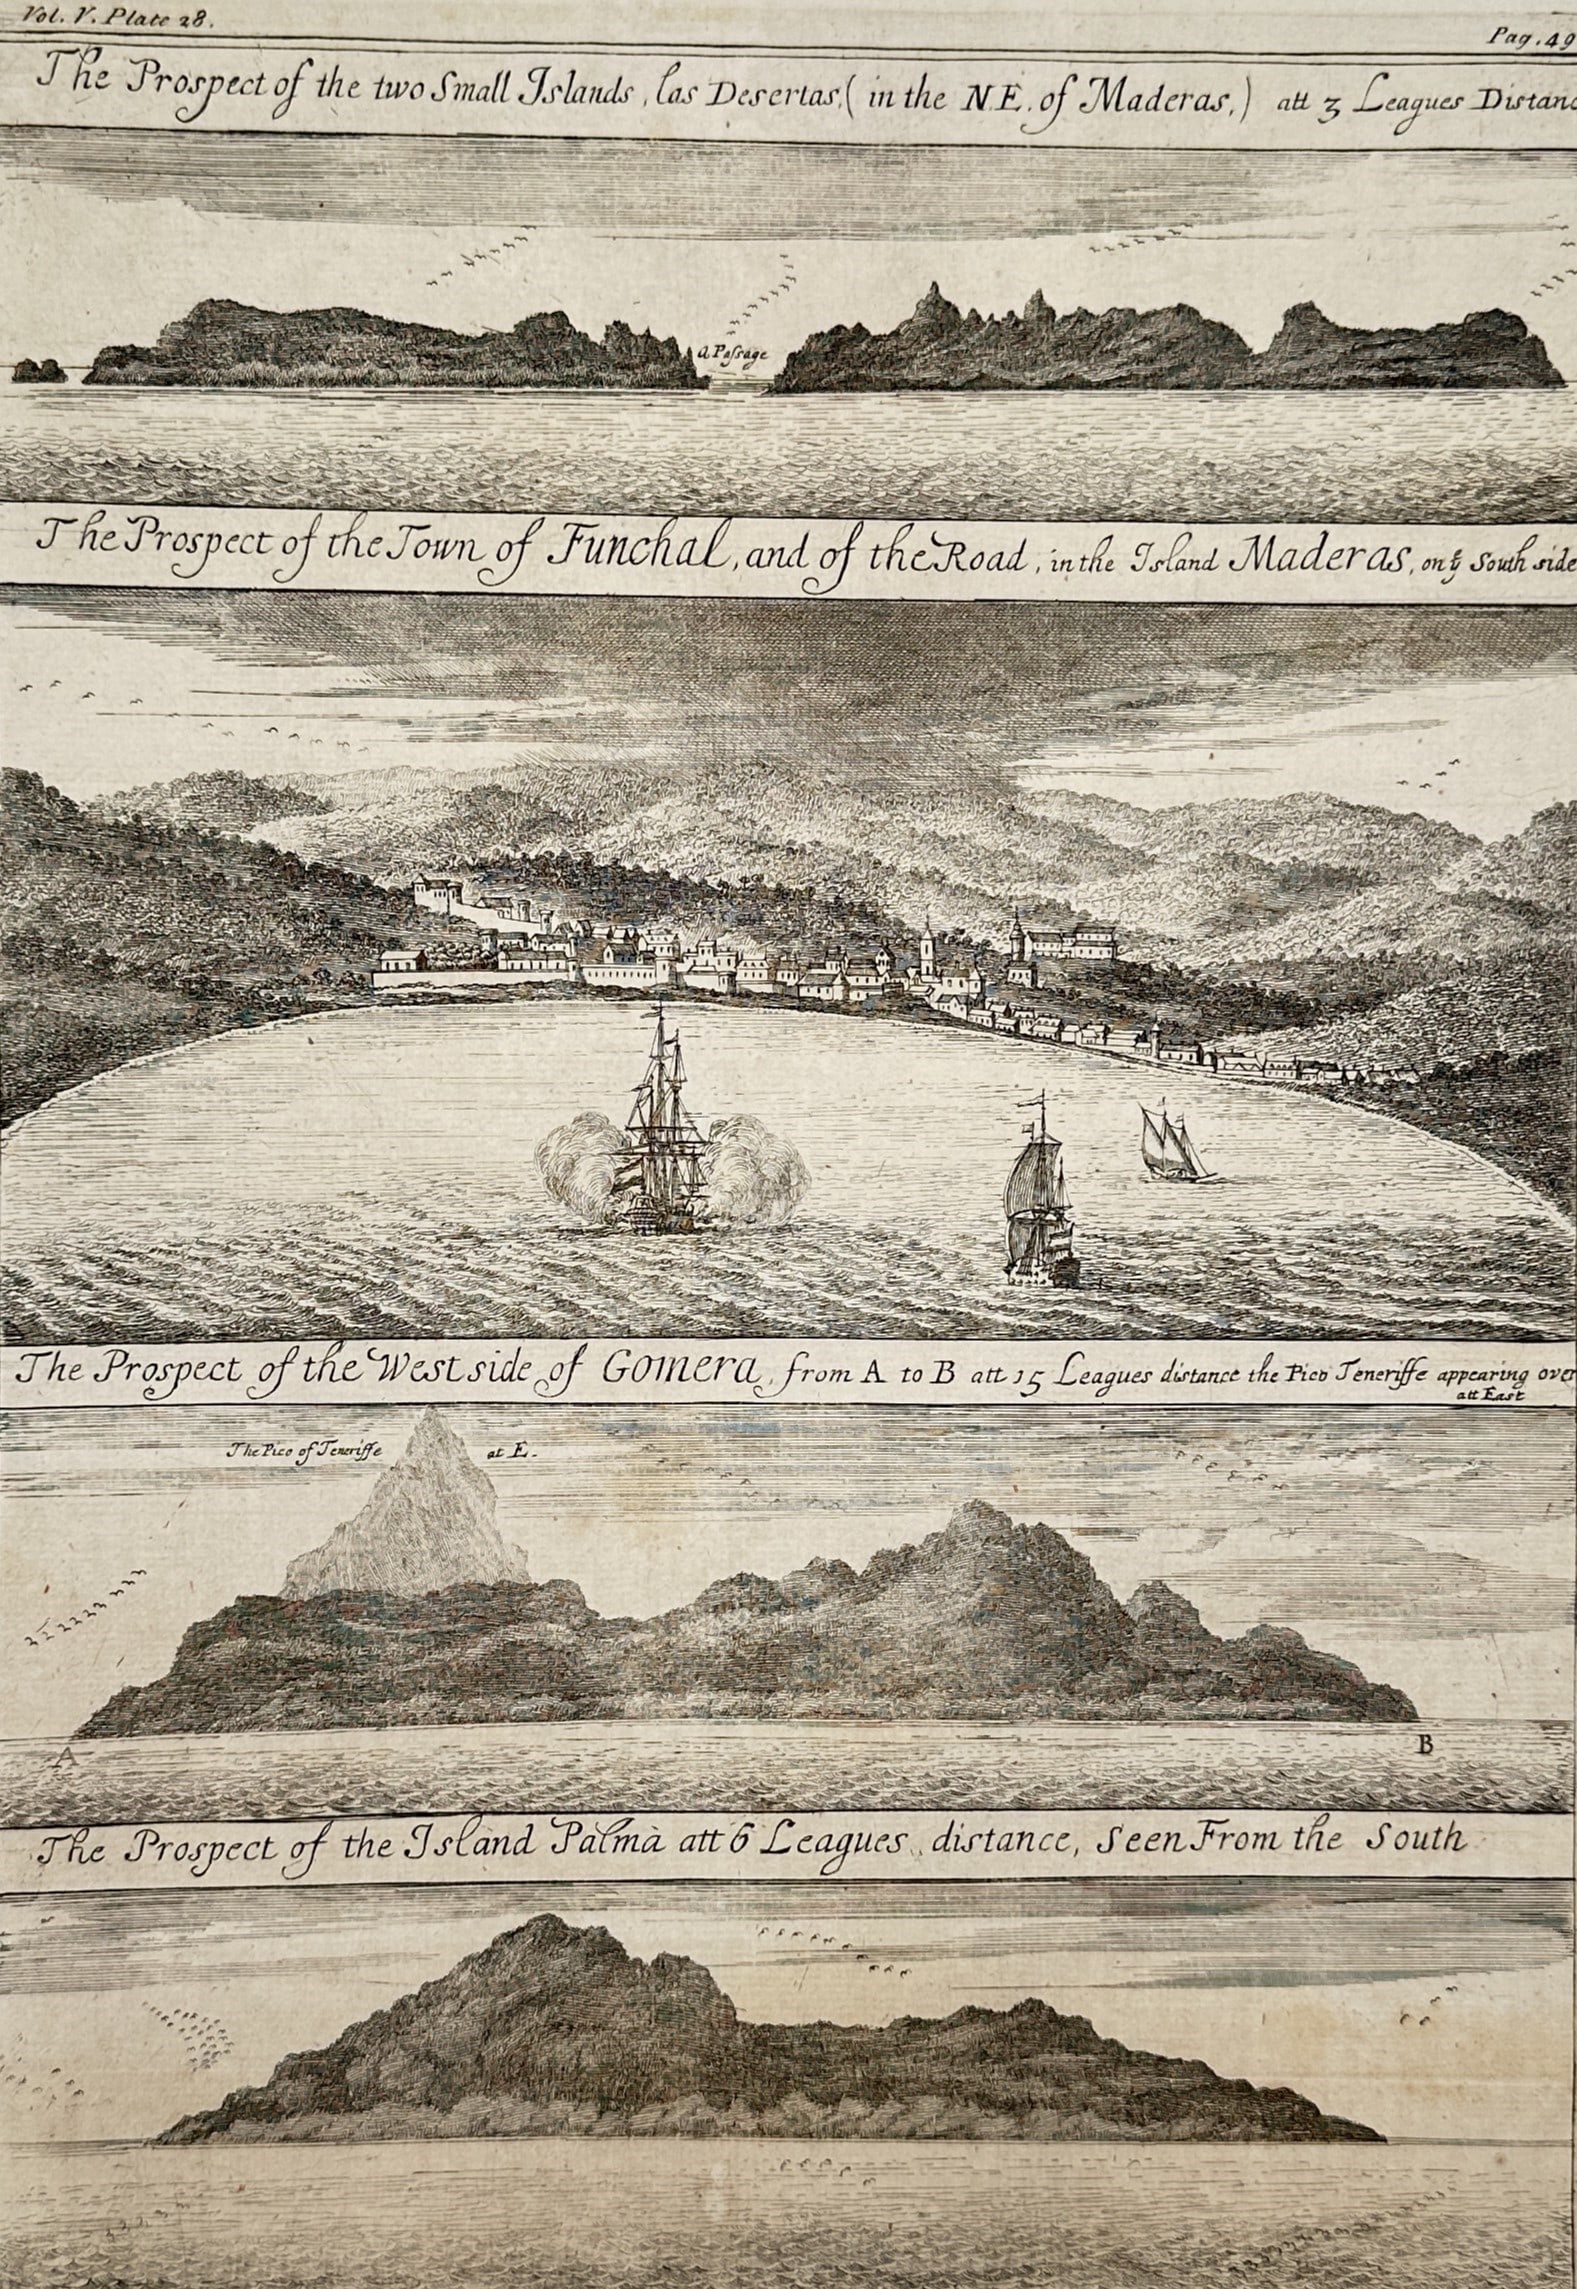 Vol. V. Plate 28.
Pag. 49
The Prospect of the two Small Islands, las Desertas, (in the N.E. of Maderas,) att 3 Leagues Distanc
a Passage
The Prospect of the Town of Funchal, and of the Road, in the Island Maderas, on ye South side
The Prospect of the West side of Gomera, from A to B att 15 Leagues distance the Pico Teneriffe appearing over
att East
The Pico of Teneriffe at E.
A
B
The Prospect of the Island Palma att 6 Leagues, distance, Seen From the South